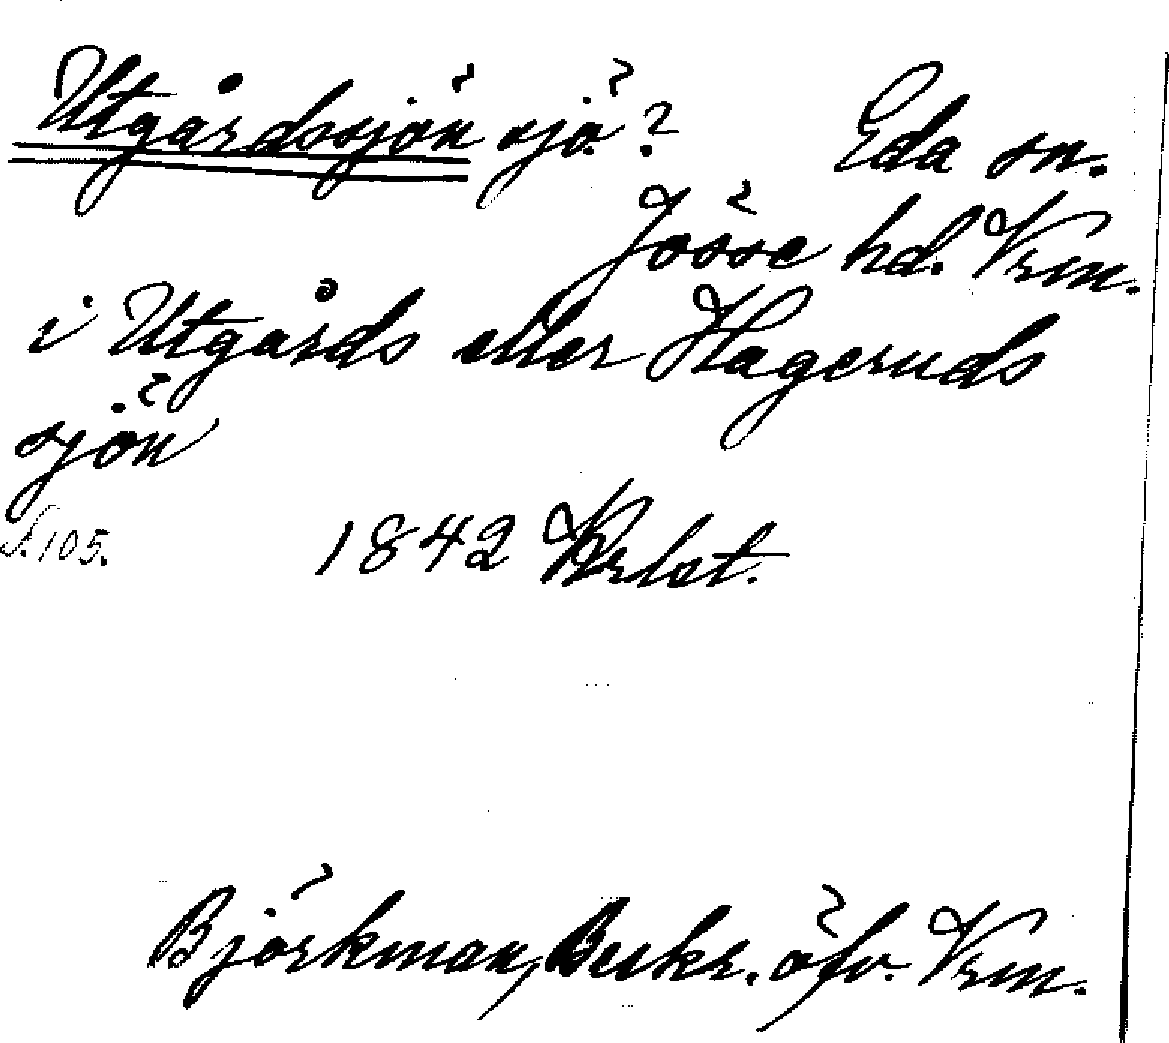 Utgårdssjön sjö? Eda sn.
Jösse hd. Vrm.
i Utgårds eller Hageruds
sjön
S. 105. 1842 Krlst.
Björkman, Beskr. öfv. Vrm.